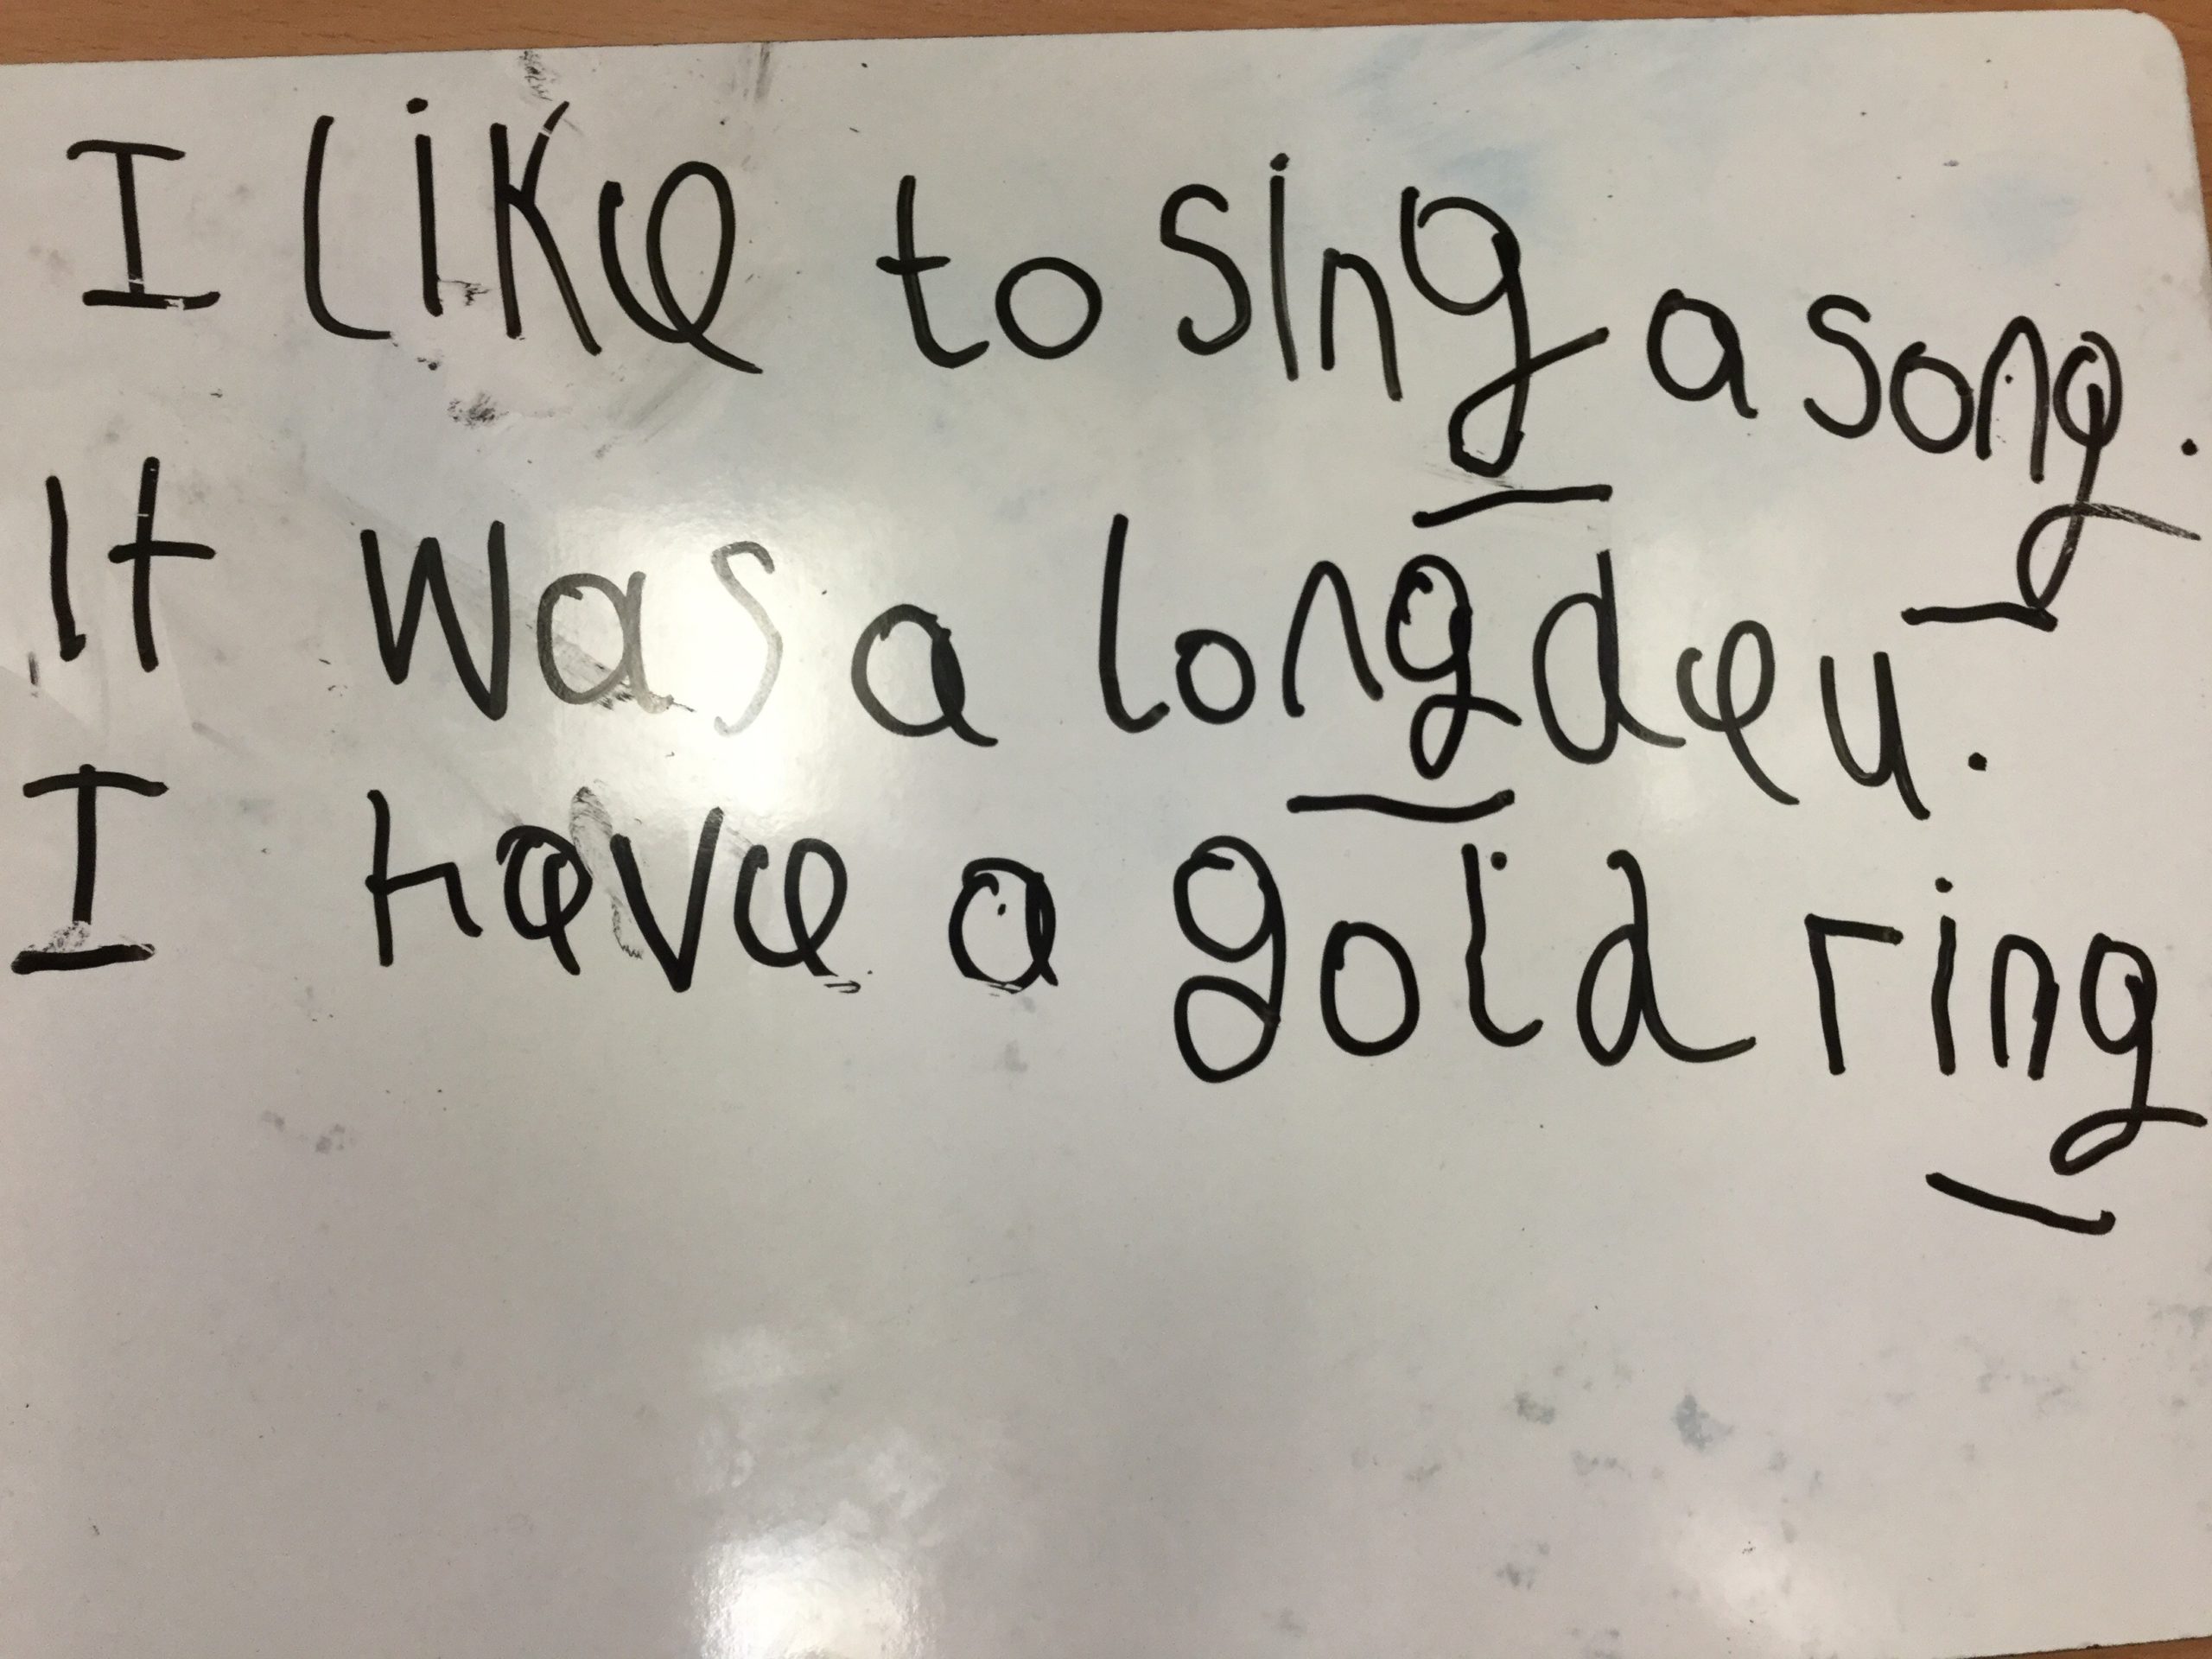 I like to sing a song.
It was a long day.
I have a gold ring